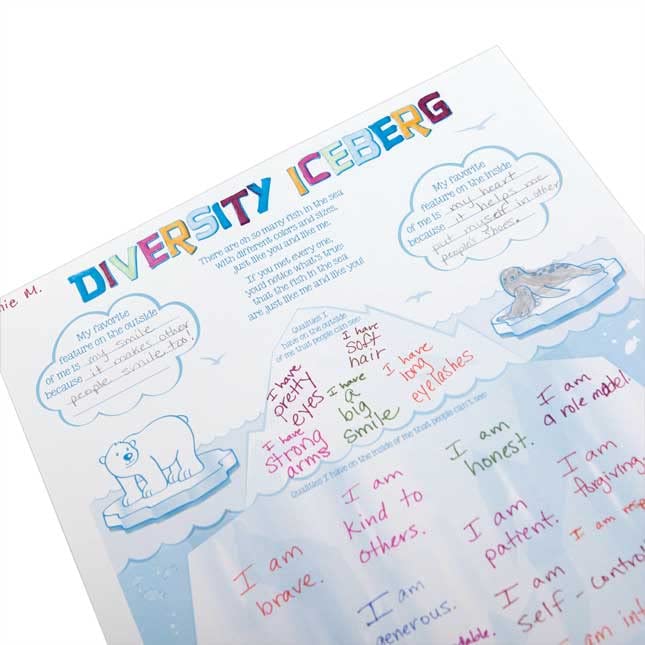 DIVERSITY ICEBERG
There are oh so many fish in the sea
with different colors and sizes,
just like you and like me.
If you met every one,
you'd notice what's true:
that the fish in the sea
are just like me and like you!
My favorite
feature on the inside
of me is my heart
because it helps me
put myself in other
people's shoes.
nie M.
My favorite
feature on the outside
of me is my smile
because it makes other
people smile, too!
Qualities I
have on the outside
of me that people can see
I have
pretty
eyes
I have
soft
hair
I have
a
big
smile
I have
long
eyelashes
I have
strong
arms
Qualities I have on the inside of me that people can't see
I am
brave.
I am
kind to
others.
I am
honest.
I am
a role model
I am
patient.
I am
forgiving
I am
I am
self-control
I am
I am